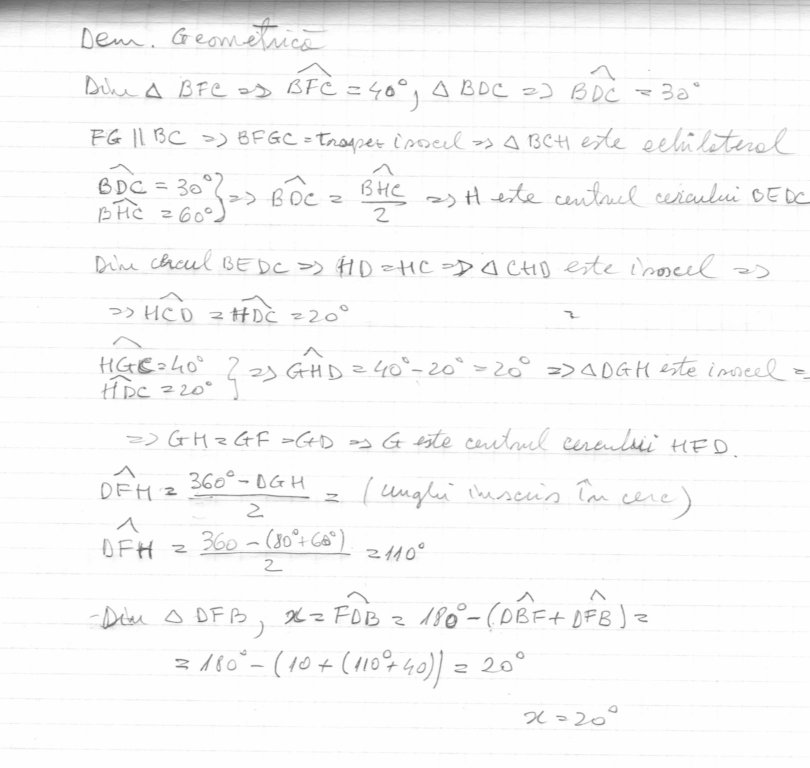 Dem. Geometrică
Din Δ BFC => BFC = 40°, Δ BDC => BDC = 30°
FG || BC => BFGC = trapez isoscel => Δ BCH este echilateral
BDC = 30°
BHC = 60° } => BDC = BHC / 2 => H este centrul cercului BEDC
Din cercul BEDC => HD = HC => Δ CHD este isoscel =>
=> HCD = HDC = 20°
HGC = 40°
HDC = 20° } => GHD = 40° - 20° = 20° => Δ DGH este isoscel =
=> GH = GF = GD => G este centrul cercului HFD.
DFH = 360° - DGH / 2 = (unghi inscris în cerc)
DFH = 360 - (80° + 60°) / 2 = 110°
- Din Δ DFB, x = FDB = 180° - (DBF + DFB) =
= 180° - (10 + (110° + 40)) = 20°
x = 20°